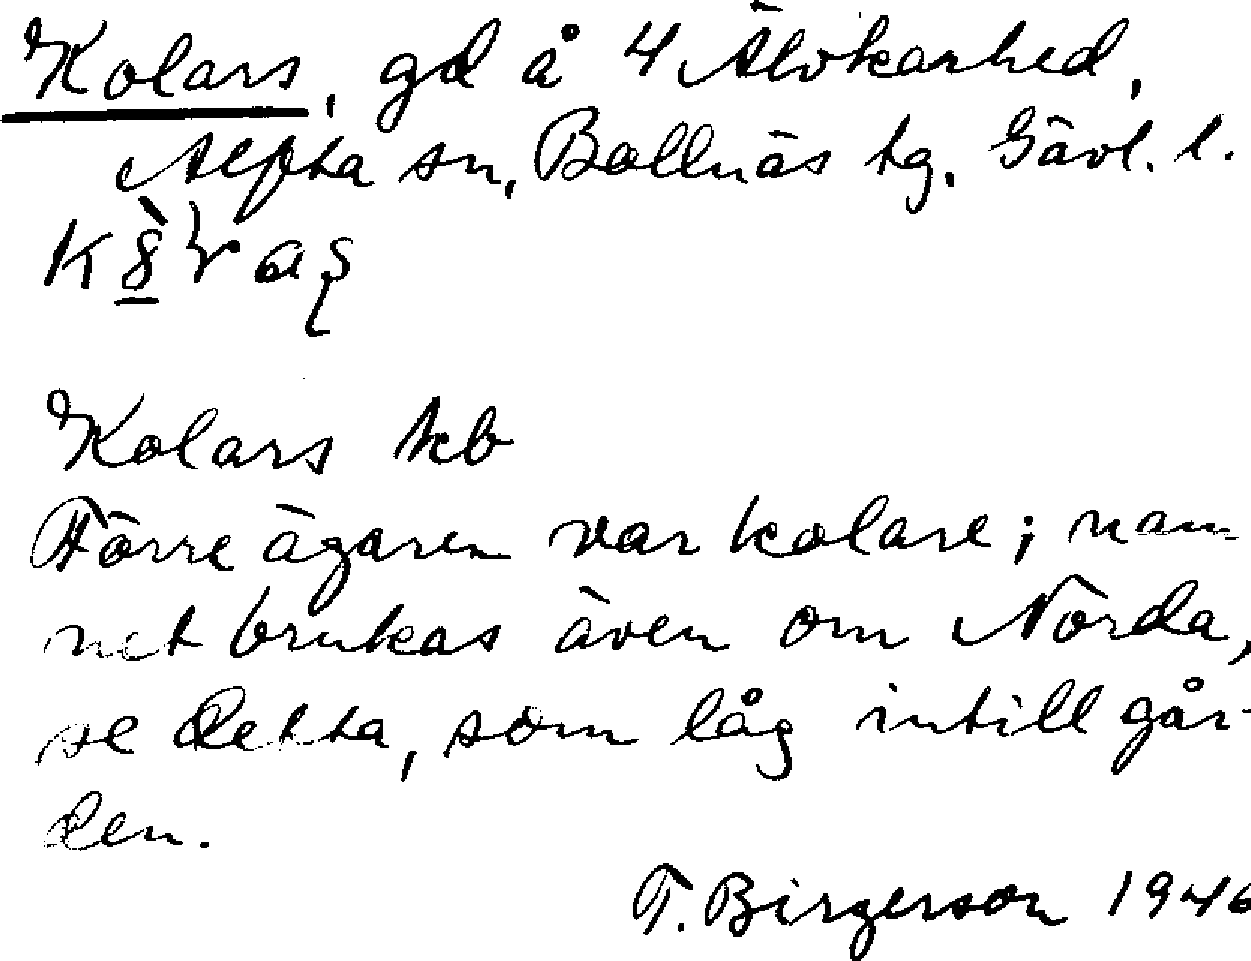 Kolars, gd å 4 Älvkarhed,
Alfta sn, Bollnäs tg. Gävl. l.
Kolars kb
Förre ägaren var kolare; nam-
net brukas även om Norda,
se detta, som låg intill går-
den.
T. Birgerson 1946